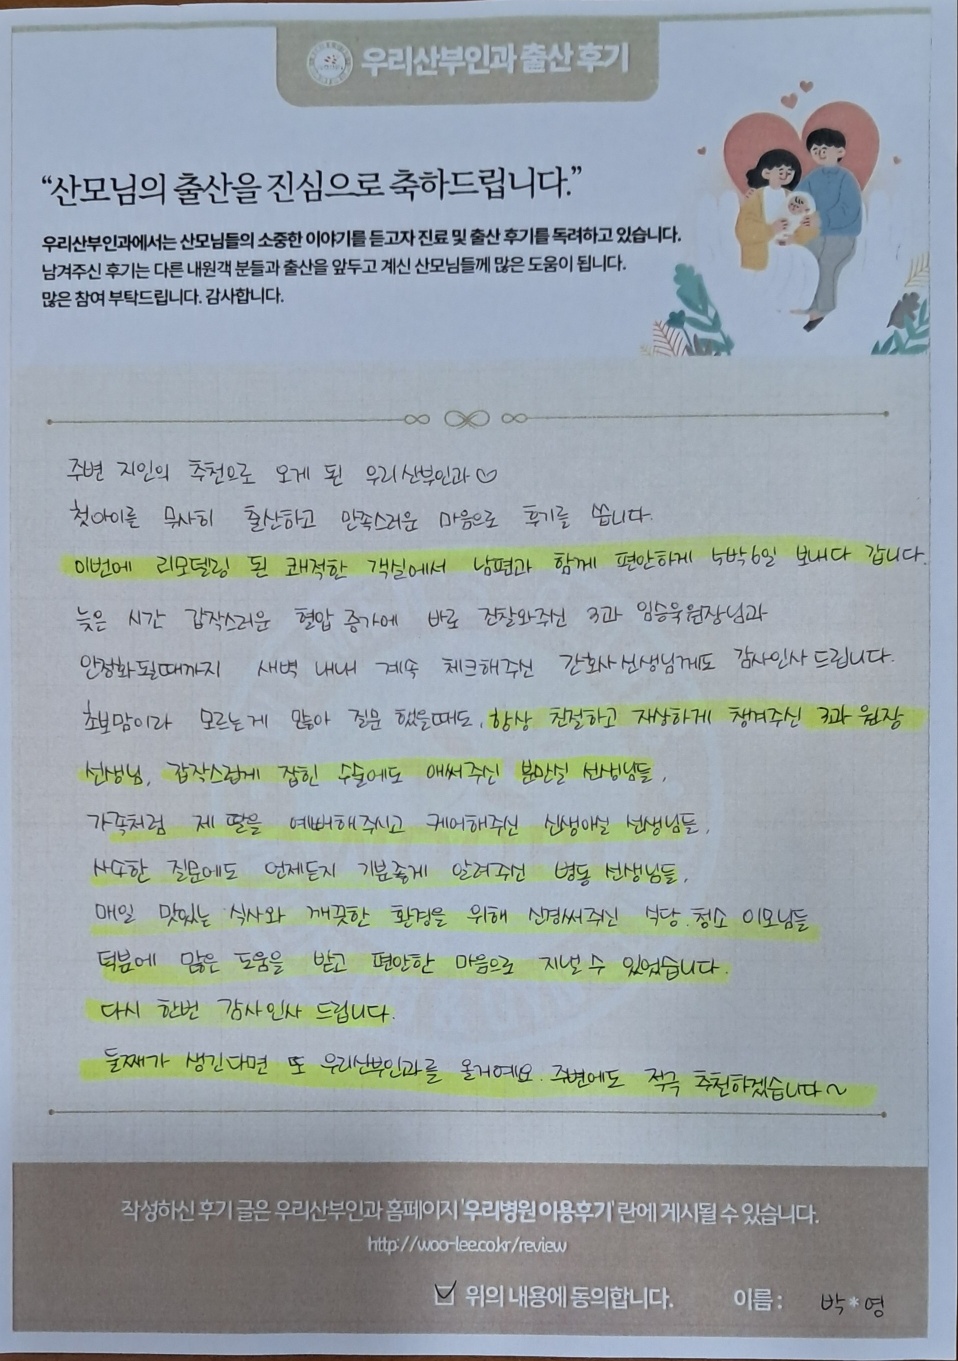 우리산부인과 출산 후기
“산모님의 출산을 진심으로 축하드립니다.”
우리산부인과에서는 산모님들의 소중한 이야기를 듣고자 진료 및 출산 후기를 독려하고 있습니다.
남겨주신 후기는 다른 내원객 분들과 출산을 앞두고 계신 산모님들께 많은 도움이 됩니다.
많은 참여 부탁드립니다. 감사합니다.
주변 지인의 추천으로 오게 된 우리산부인과♡
첫아이를 무사히 출산하고 만족스러운 마음으로 후기를 씁니다.
이번에 리모델링 된 쾌적한 객실에서 남편과 함께 편안하게 5박6일 보내다 갑니다.
늦은 시간 갑작스러운 혈압 증가에 바로 진찰와주신 3과 임승욱원장님과
안정화될때까지 새벽 내내 계속 체크해주신 간호사선생님께도 감사인사 드립니다.
초보맘이라 모르는게 많아 질문 했을때도, 항상 친절하고 자상하게 챙겨주신 3과 원장
선생님, 갑작스럽게 잡힌 수술에도 애써주신 분만실 선생님들,
가족처럼 제 딸을 예뻐해주시고 케어해주신 신생아실 선생님들,
사소한 질문에도 언제든지 기분좋게 알려주신 병동 선생님들,
매일 맛있는 식사와 깨끗한 환경을 위해 신경써주신 식당.청소 이모님들
덕분에 많은 도움을 받고 편안한 마음으로 지낼 수 있었습니다.
다시 한번 감사인사 드립니다.
둘째가 생긴다면 또 우리산부인과를 올거예요. 주변에도 적극 추천하겠습니다~
작성하신 후기 글은 우리산부인과 홈페이지 '우리병원 이용후기' 란에 게시될 수 있습니다.
http://woo-lee.co.kr/review
위의 내용에 동의합니다. 이름 : 박*영